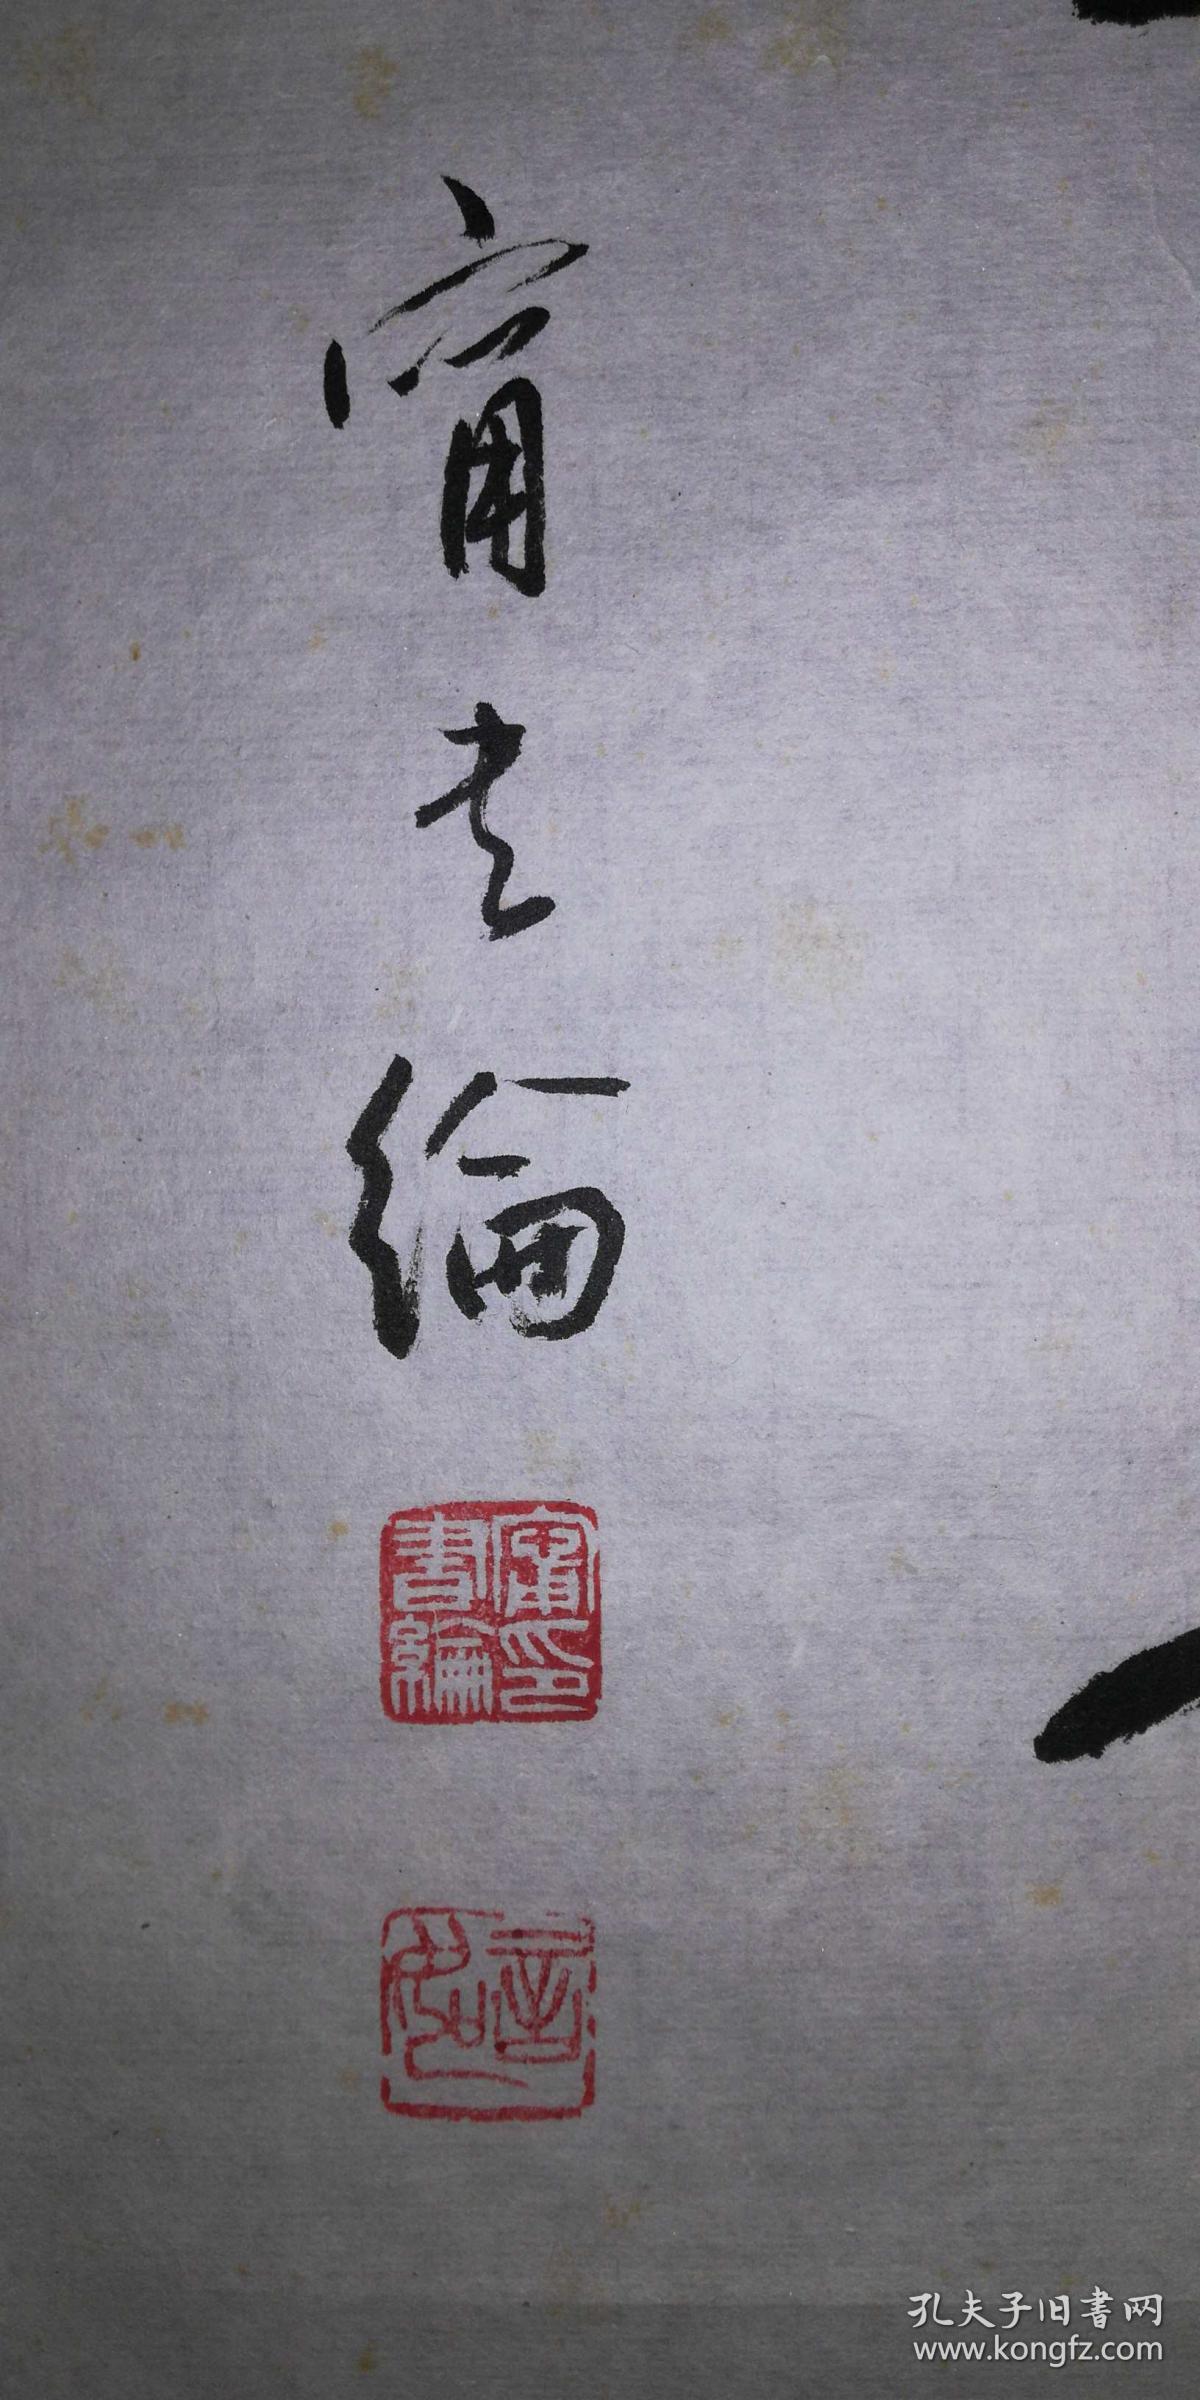 甯书綸
甯印
書綸
孔夫子旧書网
www.kongfz.com